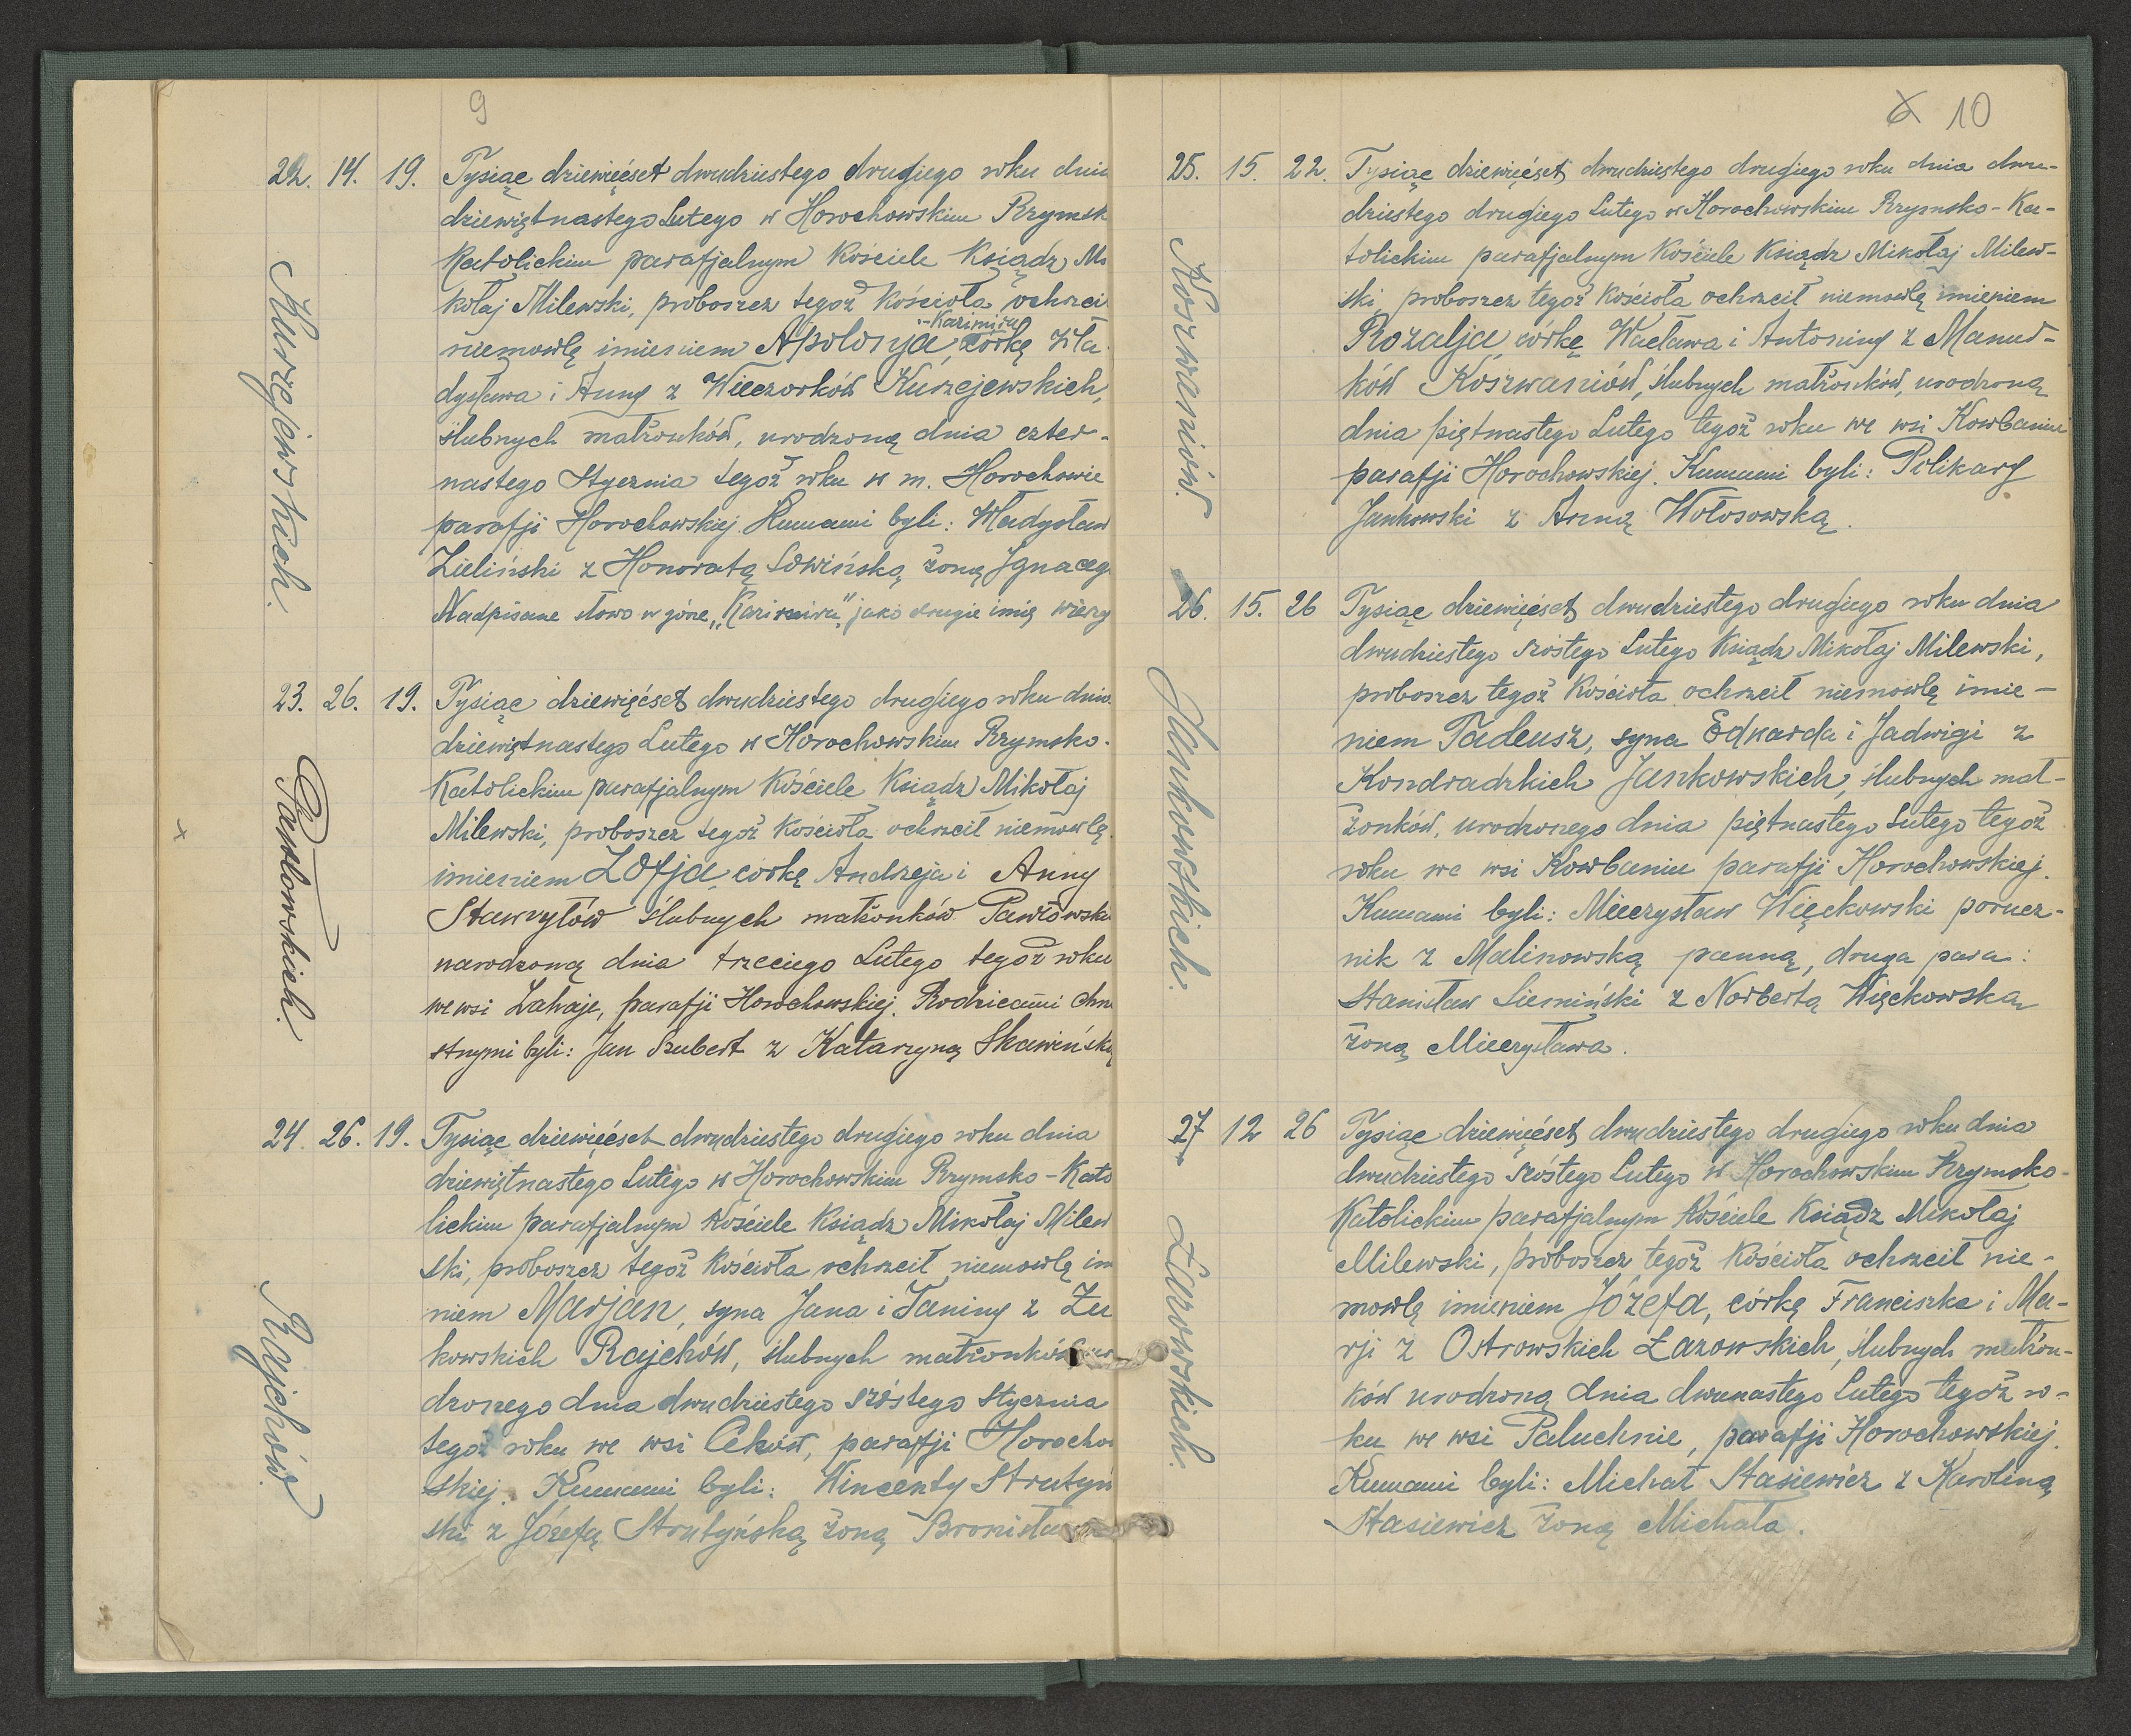 9
22. 14. 19. Tysiąc dziewięćset dwudziestego drugiego roku dnia
dziewiętnastego Lutego w Horochowskim Rzymsk
Katolickim parafjalnym Kościele Ksiądz Mi
kołaj Milewski, proboszcz tegoż Kościoła ochrzci
-Kazimira
niemowlę imieniem Apolonja, córkę Wła
dysława i Anny z Wieczorków Kurzejewskich,
ślubnych małżonków, urodzoną dnia czter-
nastego Stycznia tegoż roku w m. Horochowie
parafji Horochowskiej. Kumami byli: Władysław
Zieliński z Honoratą Sowińską żoną Ignaceg
Nadpisane słowo w górze „Kazimira" jako drugie imię wierzy
Kurzejewskich.
23. 26. 19. Tysiąc dziewięćset dwudziestego drugiego roku dnia
dziewiętnastego Lutego w Horochowskim Rzymsko-
Katolickim parafjalnym Kościele Ksiądz Mikołaj
Milewski, proboszcz tegoż Kościoła ochrzcił niemowlę
imieniem Zofja, córkę Andrzeja i Anny
Stawryłów ślubnych małżonków Pawłowski
narodzoną dnia trzeciego Lutego tegoż roku
we wsi Zahaje, parafji Horochowskiej. Rodzicami chrze
stnymi byli: Jan Szubert z Katarzyną Skawińską
Pawłowskich.
24. 26. 19. Tysiąc dziewięćset dwudziestego drugiego roku dnia
dziewiętnastego Lutego w Horochowskim Rzymsko-Kato
lickim parafjalnym Kościele Ksiądz Mikołaj Milew
ski, proboszcz tegoż Kościoła ochrzcił niemowlę im
niem Marjan, syna Jana i Janiny z Żu
kowskich Rajchów, ślubnych małżonków uro
dzonego dnia dwudziestego szóstego Stycznia
tegoż roku we wsi Ceków, parafji Horocho
skiej. Kumami byli: Wincenty Strutyń
ski z Józefą Strutyńską żoną Bronisła
Rajchów.
x 10
25. 15. 22. Tysiąc dziewięćset dwudziestego drugiego roku dnia dwu-
dziestego drugiego Lutego w Horochowskim Rzymsko-Ka-
tolickim parafjalnym Kościele Ksiądz Mikołaj Milew-
ski proboszcz tegoż Kościoła ochrzcił niemowlę imieniem
Rozalja, córkę Wacława i Antoniny z Manud-
ków Koszwaniów, ślubnych małżonków, urodzoną
dnia piętnastego Lutego tegoż roku we wsi Kowbaniu
parafji Horochowskiej. Kumami byli: Polikarp
Jankowski z Anną Wołosowską.
Koszwaniów.
26. 15. 26 Tysiąc dziewięćset dwudziestego drugiego roku dnia
dwudziestego szóstego Lutego Ksiądz Mikołaj Milewski,
proboszcz tegoż Kościoła ochrzcił niemowlę imie-
niem Tadeusz, syna Edwarda i Jadwigi z
Kondradzkich Jankowskich, ślubnych mał-
żonków, urodzonego dnia piętnastego Lutego tegoż
roku we wsi Kowbaniu parafji Horochowskiej.
Kumami byli: Mieczysław Więckowski porucz-
nik z Malinowską panną, druga para:
Stanisław Siemiński z Norbertą Więckowską
żoną Mieczysława.
Jankowskich.
27 12 26 Tysiąc dziewięćset dwudziestego drugiego roku dnia
dwudziestego szóstego Lutego w Horochowskim Rzymsko-
Katolickim parafjalnym Kościele Ksiądz Mikołaj
Milewski, proboszcz tegoż Kościoła ochrzcił nie-
mowlę imieniem Józefa, córkę Franciszka i Ma-
rji z Ostrowskich Łazowskich, ślubnych małżon-
ków urodzoną dnia dwunastego Lutego tegoż ro-
ku we wsi Paluchnie, parafji Horochowskiej.
Kumami byli: Michał Stasiewicz z Karoliną
Stasiewicz żoną Michała.
Łazowskich.